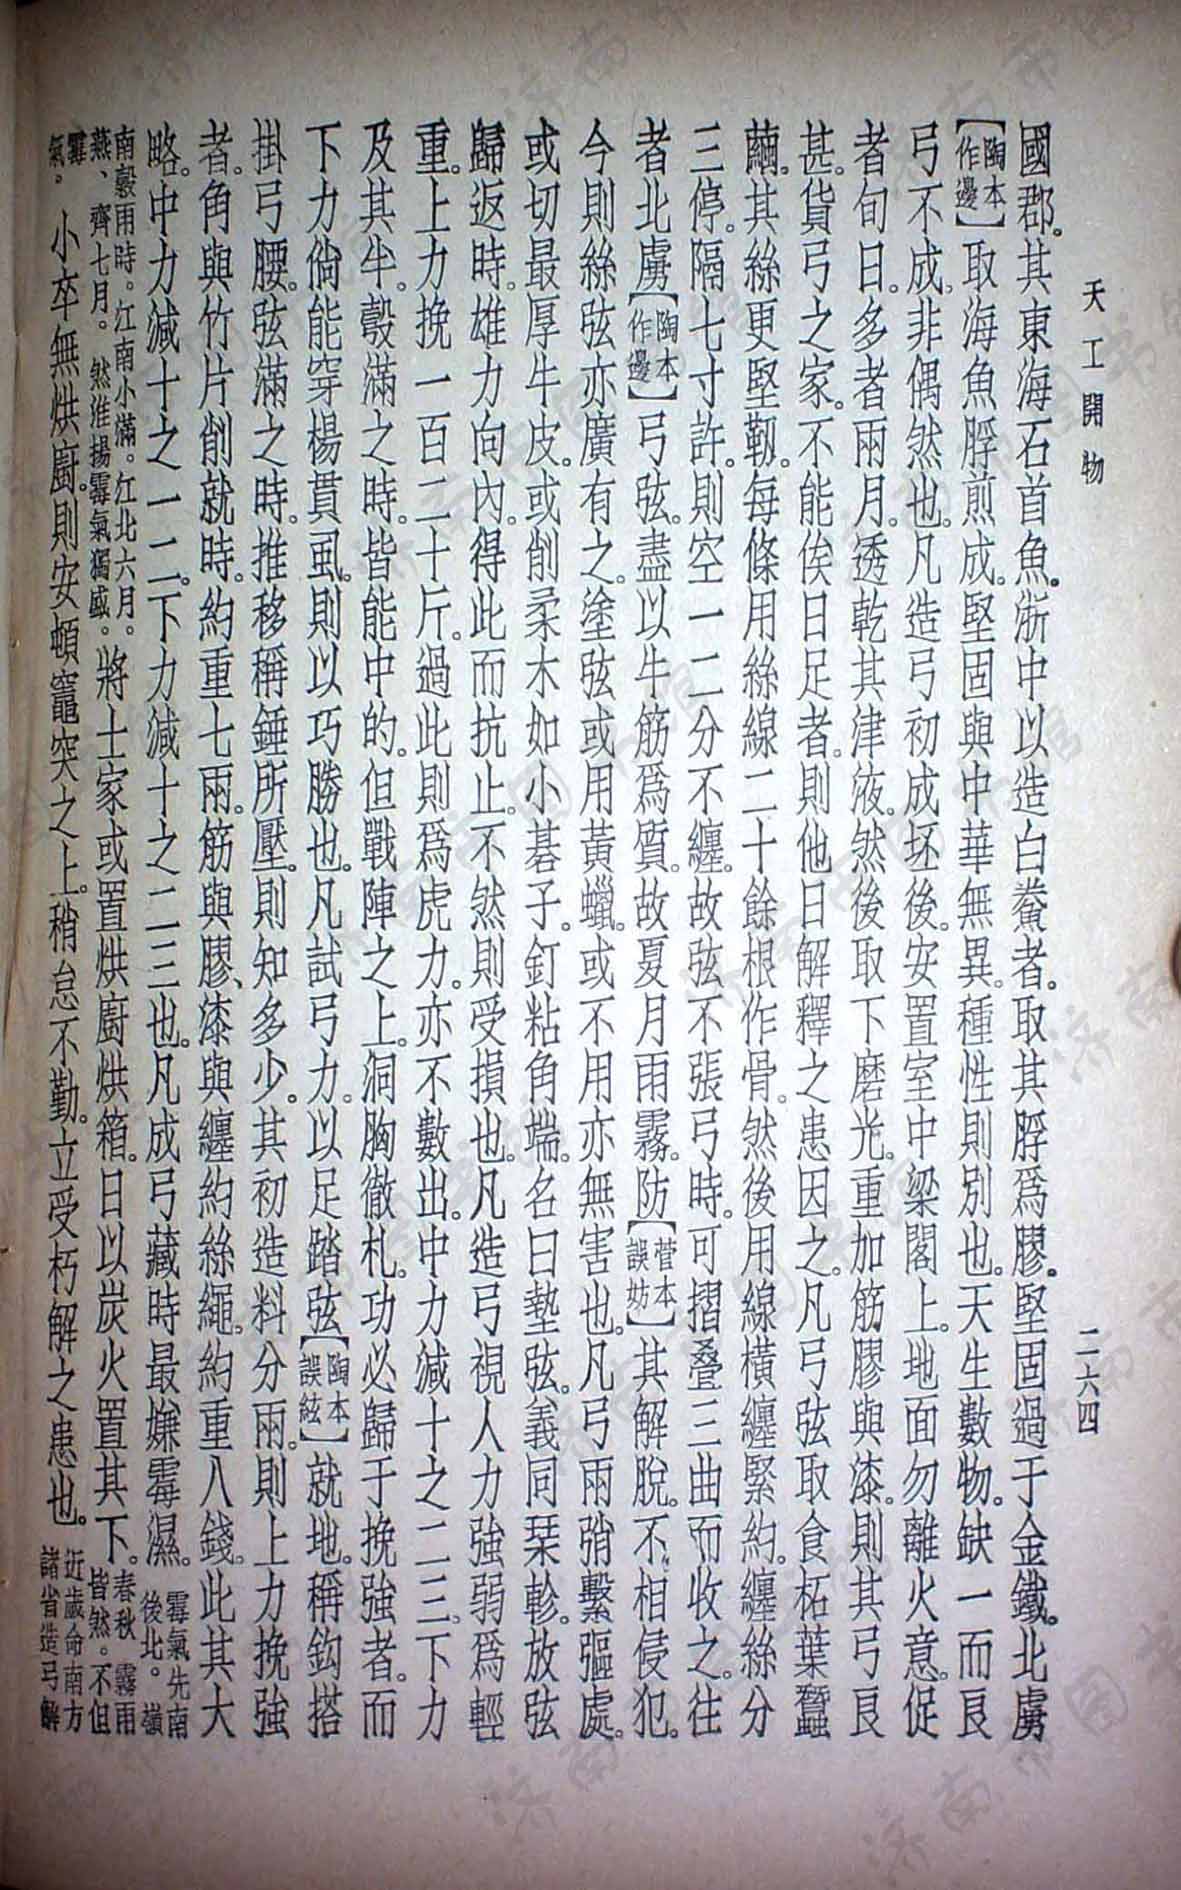 天工開物
二六四
國郡。其東海石首魚。浙中以造白鯗者。取其脬爲膠。堅固過于金鐵。北虜
【陶本作邊】取海魚脬煎成。堅固與中華無異。種性則別也。天生數物。缺一而良
弓不成。非偶然也。凡造弓初成坯後。安置室中梁閣上。地面勿離火意。促
者旬日。多者兩月。透乾其津液。然後取下磨光。重加筋膠與漆。則其弓良
甚。貨弓之家。不能俟日足者。則他日解釋之患因之。凡弓弦取食柘葉蠶
繭。其絲更堅韌。每條用絲線二十餘根作骨。然後用線橫纏緊約。纏絲分
三停。隔七寸許。則空一二分不纏。故弦不張弓時。可摺疊三曲而收之。往
者北虜【陶本作邊】弓弦。盡以牛筋爲質。故夏月雨霧。防【菅本誤妨】其解脫。不相侵犯。
今則絲弦亦廣有之。塗弦或用黃蠟。或不用亦無害也。凡弓兩弰繫彄處。
或切最厚牛皮。或削柔木如小棊子。釘粘角端。名曰墊弦。義同琹軫。放弦
歸返時。雄力向內。得此而抗止。不然則受損也。凡造弓視人力強弱爲輕
重。上力挽一百二十斤。過此則爲虎力。亦不數出。中力減十之二三。下力
及其半。彀滿之時。皆能中的。但戰陣之上。洞胸徹札。功必歸于挽強者。而
下力倘能穿楊貫虱。則以巧勝也。凡試弓力。以足踏弦【陶本誤絃】就地。稱鈎搭
掛弓腰。弦滿之時。推移稱錘所壓。則知多少。其初造料分兩。則上力挽強
者。角與竹片削就時。約重七兩。筋與膠、漆與纏約絲繩。約重八錢。此其大
略。中力減十之一二。下力減十之二三也。凡成弓藏時最嫌霉濕。霉氣先南後北。嶺
南穀雨時。江南小滿。江北六月。燕、齊七月。然淮揚霉氣獨盛。將士家或置烘廚烘箱。日以炭火置其下。春秋霧雨皆然。不但
霉氣。小卒無烘廚。則安頓竈突之上。稍怠不勤。立受朽解之患也。近歲命南方諸省造弓解